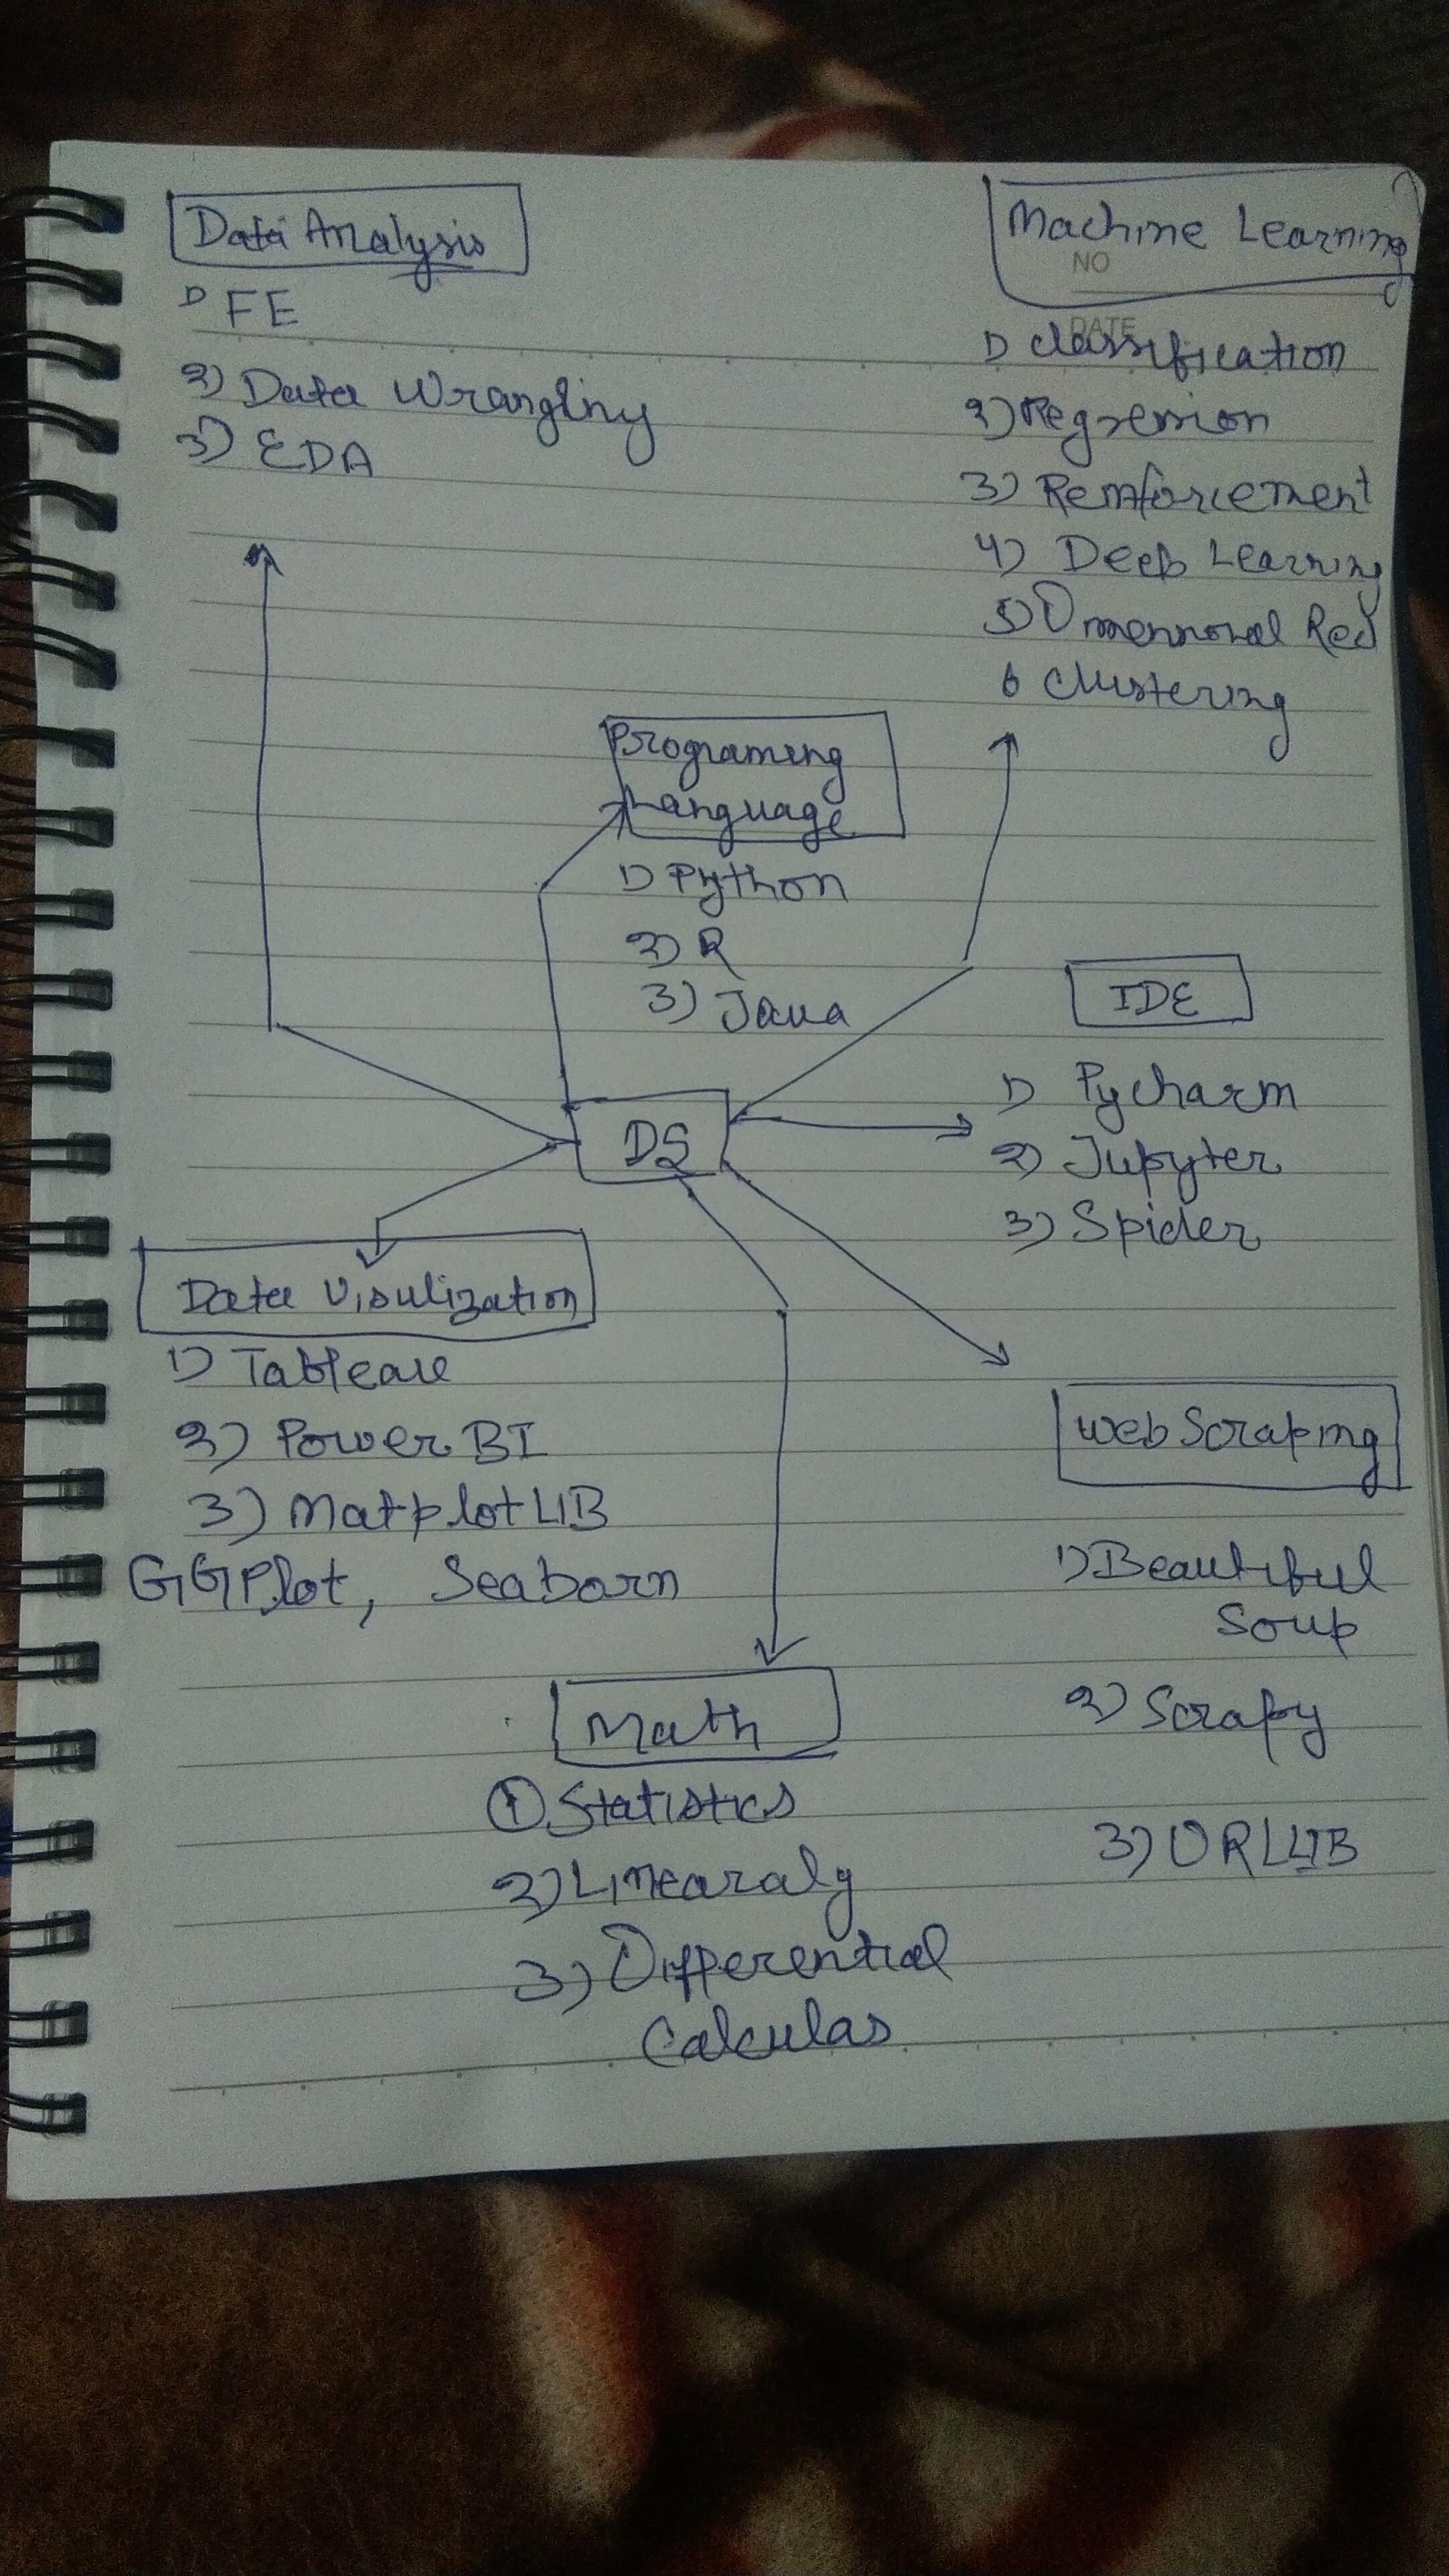 Data Analysis
1) FE
2) Data Wrangling
3) EDA
Machine Learning
NO
DATE
1) Classification
2) Regression
3) Reinforcement
4) Deep Learning
5) Dimensional Red
6 Clustering
Programing
Language
1) Python
2) R
3) Java
IDE
1) Pycharm
2) Jupyter
3) Spider
DS
Data Visulization
1) Tableau
2) Power BI
3) MatplotLIB
GGPlot, Seaborn
Web Scraping
1) Beautiful
Soup
2) Scrapy
3) URLLIB
Math
1) Statistics
2) Linearalg
3) Differential
Calculas